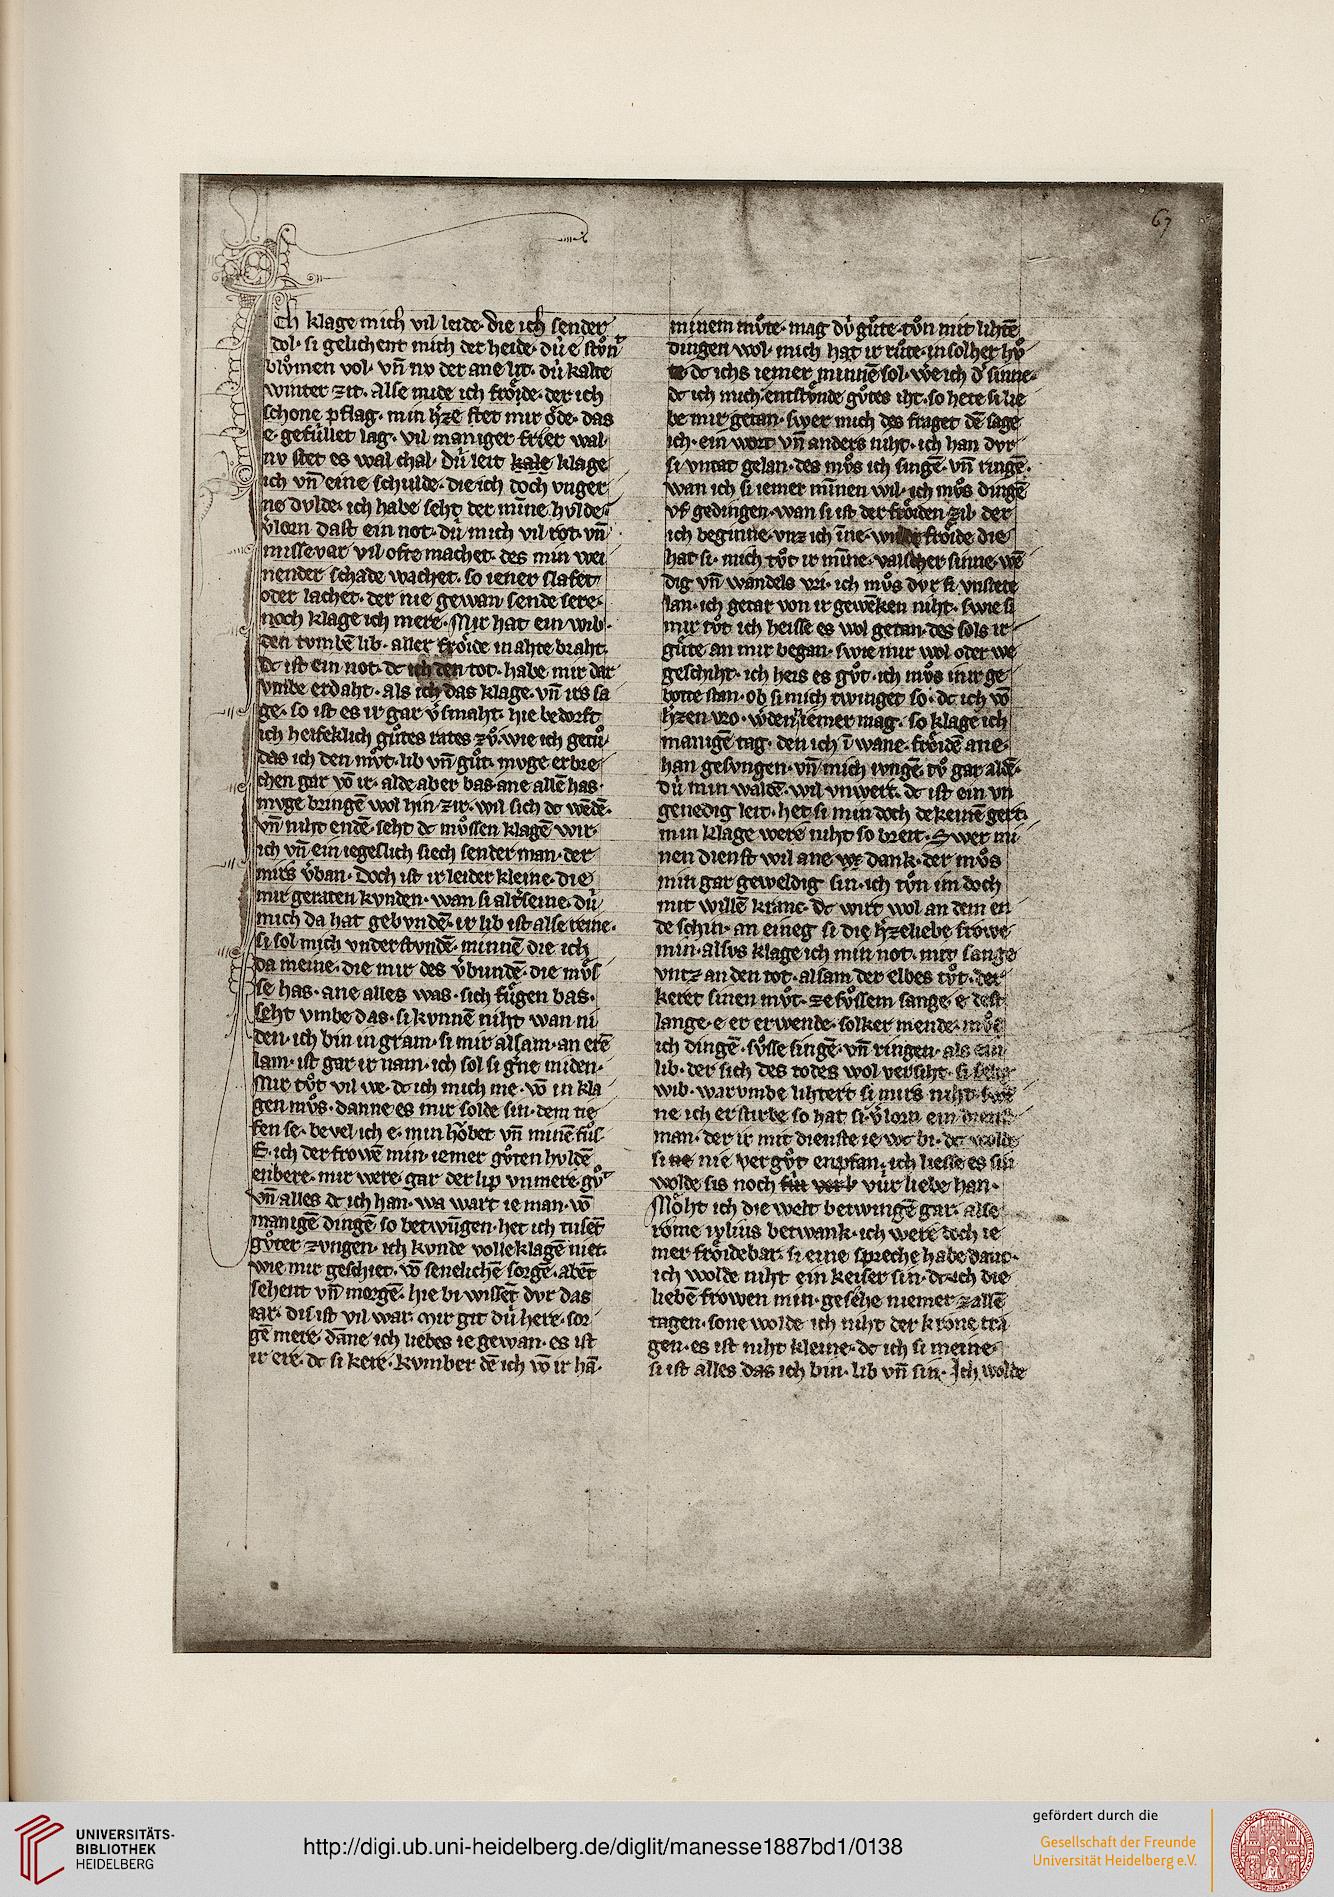 67
Ich klage mich vil leide· die ich sender
dol· si gelichent mich der heide· dú e stůnt
blůmen vol· vn̄ nv der ane lit· dú kalte
winter zit· Alse mide ich froͤide· der ich
schone pflag· min h̓ze stet mir oͤde· das
e· gefúllet lag· vil maniger frier wal·
nv stet es wal chal· dú leit kale klage
ich vn̄ eine schulde· die ich doch vnger
ne dvlde· ich habe seht der min̄e hvlde·
v̓lorn dast ein not· dú mich vil rot· vn̄
missevar vil ofte machet· des min wei
nender schade wachet· so iener slafet
oder lachet· der nie gewan sende sere·
noch klage ich mere· Mir hat ein wib·
den tvmbē lib· aller froͤide in ahte braht·
dc ist ein not· dc ich den tot· habe mir dar
vmbe erdaht· als ich das klage· vn̄ irs sa
ge· so ist es ir gar v̓smaht· hie bedorft
ich helfeklich gůtes rates zů· wie ich getů·
das ich den můt· lib vn̄ gůt· mvge erbre
chen gar vō ir· alde aber bas ane allē has·
mvge bringē wol hin zir· wil sich dc wēdē·
vn̄ niht endē· seht dc můssen klagē wir·
ich vn̄ ein iegeslich siech sender man· der
mirs v̓ban· Doch ist ir leider kleine· die
mir geraten kvnden· wan si alt̓seine· dú
mich da hat gebvndē· ir lib ist alse reine·
si sol mich vnderstvndē· minnē die ich
da meine· die mir des v̓bundē· die můs
se has· ane alles was· sich fuͤgen bas·
seht vmbe das· si kvnnē niht wan ni
den· ich bin in gram· si mir alsam· an erē
lam· ist gar ir nam· ich sol si g̓ne miden·
Mir tůt vil we· dc ich mich me· vō in kla
gen můs· danne es mir solde sin· dem tie
fen se· bevel ich e· min hoͮbet vn̄ minē fůs·
E· ich der frowē min· iemer gůten hvldē
enbere· mir were gar der lip vnmere· gůt
vn̄ alles dc ich han· wa wart ie man· vō
manigē dingē so betwūgen· het ich tusēt
gůter zvngen· ich kvnde volleklagē niet·
wie mir geschiet· vō senelichē sorgē· abēt
sehent vn̄ morgē· hie bi wissēt dvr das
iar· dis ist vil war· Mir git dú here· sor
gē mere dān̄e ich liebes ie gewan· es ist
ir ere· dc si kere· kvmber dē ich vō ir hā·
minem můte· mag dú gůte· tůn mit lihtē
dingen wol· mich hat ir růte· in solher hů
te dc ichs iemer minnē sol· wē ich d̓ sinne·
dc ich mich entstvͤnde gůtes iht· so hete si lie
be mir getan· swer mich des fraget dē sage
ich· ein wort vn̄ anders niht· ich han dvr
si vntat gelan· des můs ich singē· vn̄ ringē·
wan ich si iemer min̄en wil· ich můs dingē
vf gedingen· wan si ist der froͤiden zil· der
ich beginne· vnz ich in̄e· wilde froͤide die
hat si· mich tůt ir min̄e· valscher sinne· wē
dig vn̄ wandels vri· ich můs dvr si vnstete
lan· ich getar von ir gewēken niht· swie si
mir tůt ich heisse es wol getan· des sols ir
guͤte an mir began· swie mir wol oder we
geschiht· ich heis es gůt· ich můs inir ge
botte stan· ob si mich twinget so· dc ich vō
h̓zen vro· w̓den niemer mag· so klage ich
manigē tag· den ich ī wane· froͤidē ane·
han gesvngen· vn̄ mich ivngē· tů gar aldē·
dú min waldē· wil vnwert· dc ist ein vn
genedig leit· het si min doch dekeinē gert·
min klage were niht so breit· Swer mi
nen dienst wil ane dank· der můs
min gar geweldig sin· ich tůn im doch
mit willē kranc· dc wirt wol an dem en
de schin· an eineg si die h̓zeliebe frowe
min· alsvs klage ich min not· mit sange
vntz an den tot· alsam der elbes tůt· der
keret sinen můt· ze sůssem sange· e· dest
lange· e er erwende· solker mende· můs
ich dingē· sůsse singē· vn̄ ringen· als ein
lib· der sich des todes wol versiht· si selig
wib· warvmbe lihtert si mirs niht·
ne ich er stirbe so hat si v̓lorn ein
man· der ir mit dienste ie wc bi· dc wolde
si ne nie vergůt enpfan· ich liesse es sin
wolde sis noch für liebe han·
Moͤht ich die welt betwingē gar· alse
rome iylius betwank· ich were doch ie
mer froͤidebar· si eine spreche habe danc·
ich wolde niht ein keiser sin· dc ich die
liebē frowen min· gesehe niemer zallē
tagen· sone wolde ich niht der krone tra
gen· es ist niht kleine· dc ich si meine·
si ist alles das ich bin· lib vn̄ sin· Ich wolde
UNIVERSITÄTS-
BIBLIOTHEK
HEIDELBERG
http://digi.ub.uni-heidelberg.de/diglit/manesse1887bd1/0138
gefördert durch die
Gesellschaft der Freunde
Universität Heidelberg e.V.